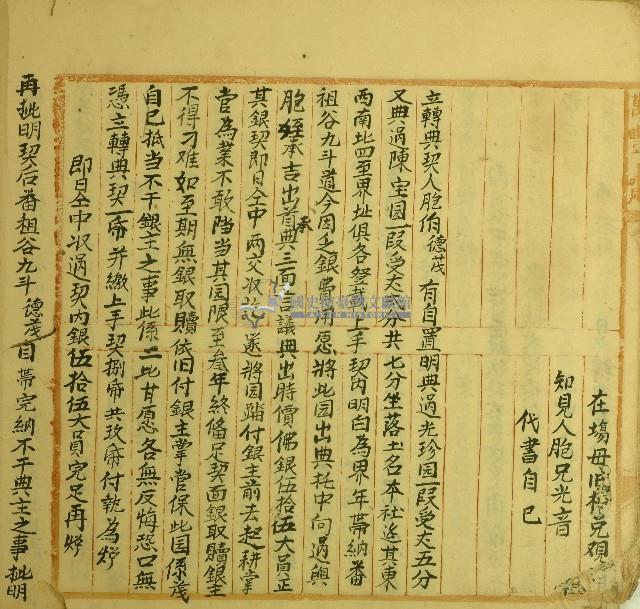 在塲母
知見人胞兄光音
代書自己
立轉典契人胞伯德茂有自置明典過光珍园一段受丈五分
又典過陳宝园一段受丈弍分共七分坐落土名本社边其東
西南北四至界址俱各登載上手契內明白為界年帶納番
祖谷九斗道今因乏銀費用愿將此园出典托中向過與
胞姪承吉出首承典三面言議典出時價佛銀伍拾伍大員正
其銀契即日仝中両交收訖遂將园踏付銀主前去起耕掌
営為業不敢阻当其园限至叁年終俻足契面銀取贖銀主
不得刁难如至期無銀取贖依旧付銀主掌営保此园係茂
自己抵当不干銀主之事此係二比甘愿各無反悔恐口無
憑立轉典契一帋并繳上手契捌帋共玖帋付執為炤
即日仝中収過契內銀伍拾伍大員完足再炤
再批明契后番祖谷九斗德茂自帶完納不干典主之事批明
國史館臺灣文獻館